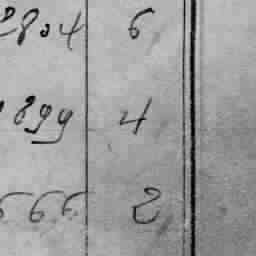 2804 6
1899 4
666 2